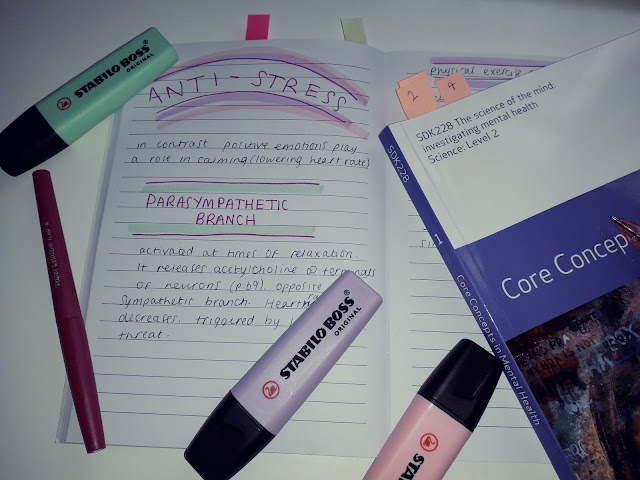 STABILO BOSS
ORIGINAL
ANTI-STRESS
in contrast positive emotions play
a role in calming (lowering heart rate)
PARASYMPATHETIC
BRANCH
activated at times of relaxation.
It releases acetylcholine @ terminals
of neurons (p.69) opposite
sympathetic branch. Heart
decreases. triggered by
threat.
physical exercise
2
4
SDK228 The science of the mind:
investigating mental health
Science: Level 2
SDK228
1
Core Concepts in Mental Health
Core Concep
STABILO BOSS
ORIGINAL
STABILO BOSS